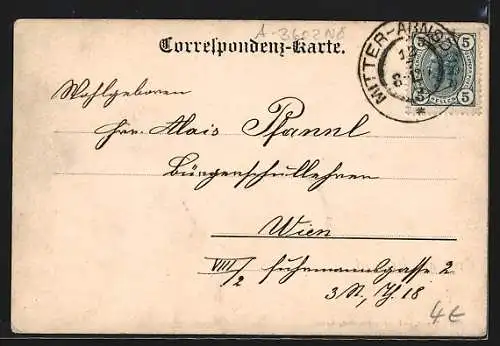 A-3602NÖ
Correspondenz-Karte.
MITTER-ARNSD
12
8-12
3
5 5
5 HELLER 5
Wohlgeboren
Hrn. Alois Pfannl
Bürgerschullehrer
Wien
VIII/2 Fuhrmannsgasse 2
3 St., T. 18
4€